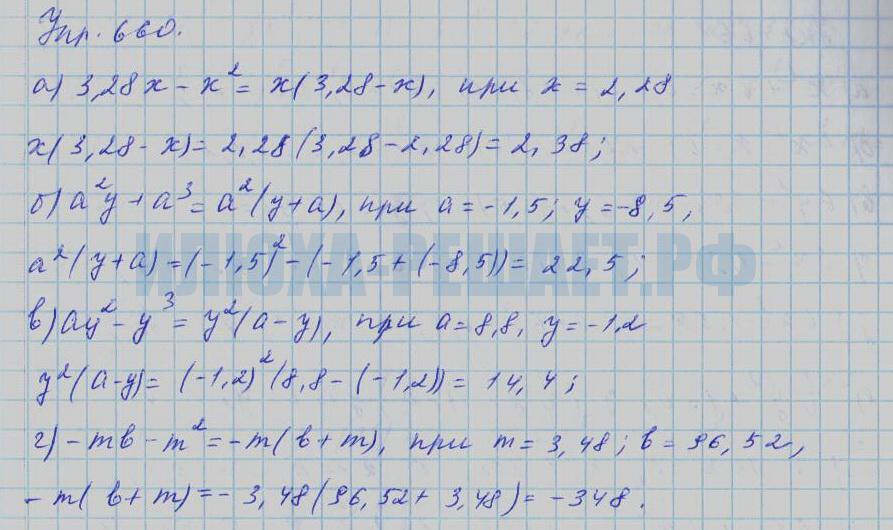 Упр. 660.
а) 3,28x - x² = x(3,28-x), при x = 2,28
x(3,28-x) = 2,28(3,28-2,28) = 2,38;
б) a²y + a³ = a²(y+a), при a = -1,5; y = -8,5,
a²(y+a) = (-1,5)² - (-1,5 + (-8,5)) = 22,5;
ИЛЮХА-РЕШАЕТ.РФ
в) ay² - y³ = y²(a-y), при a = 8,8, y = -1,2
y²(a-y) = (-1,2)²(8,8 - (-1,2)) = 14,4;
г) -mb - m² = -m(b+m), при m = 3,48; b = 96,52,
-m(b+m) = -3,48(96,52 + 3,48) = -348.